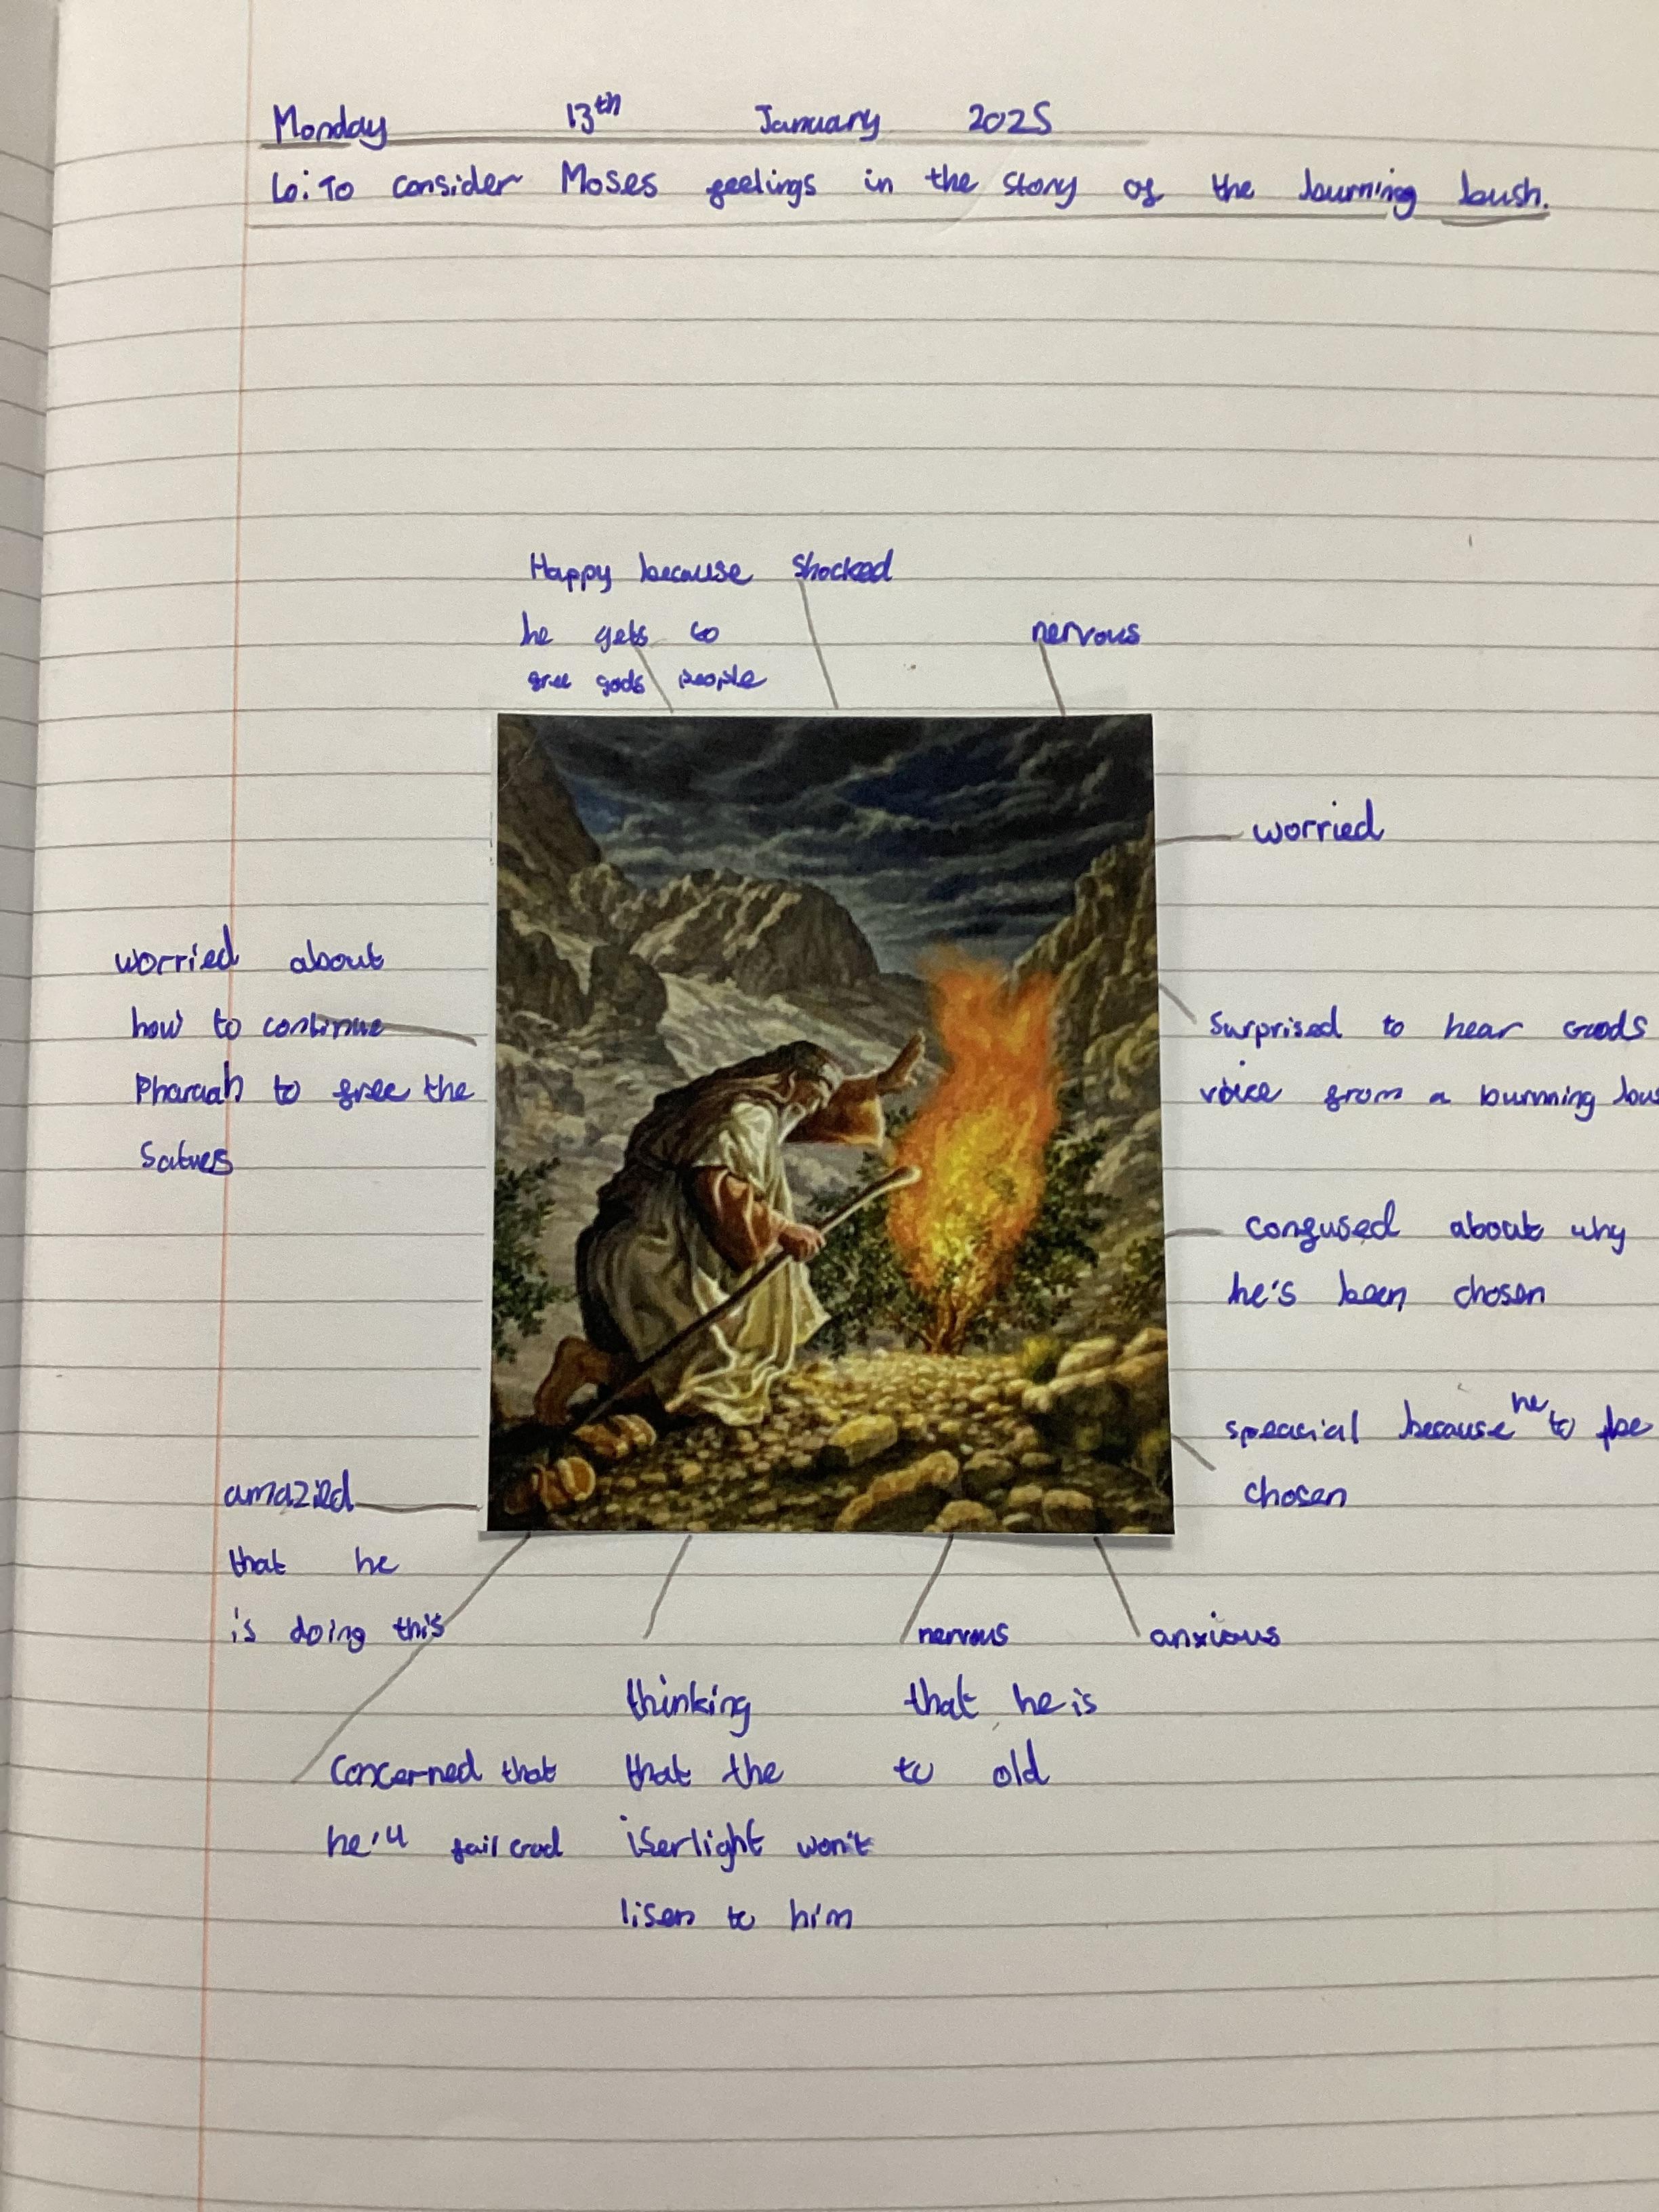 Monday 13th January 2025
Lo: To consider Moses feelings in the story of the burning bush.
Happy because
he gets to
free gods people
Shocked
nervous
worried
Surprised to hear Gods
voice from a burnning
confused about why
he's been chosen
speacial because he to be
chosen
anxious
nervous
that he is
to old
thinking
that the
iserlight won't
lisen to him
Concerned that
he'll fail God
amazied
that he
is doing this
worried about
how to continue
Pharaah to free the